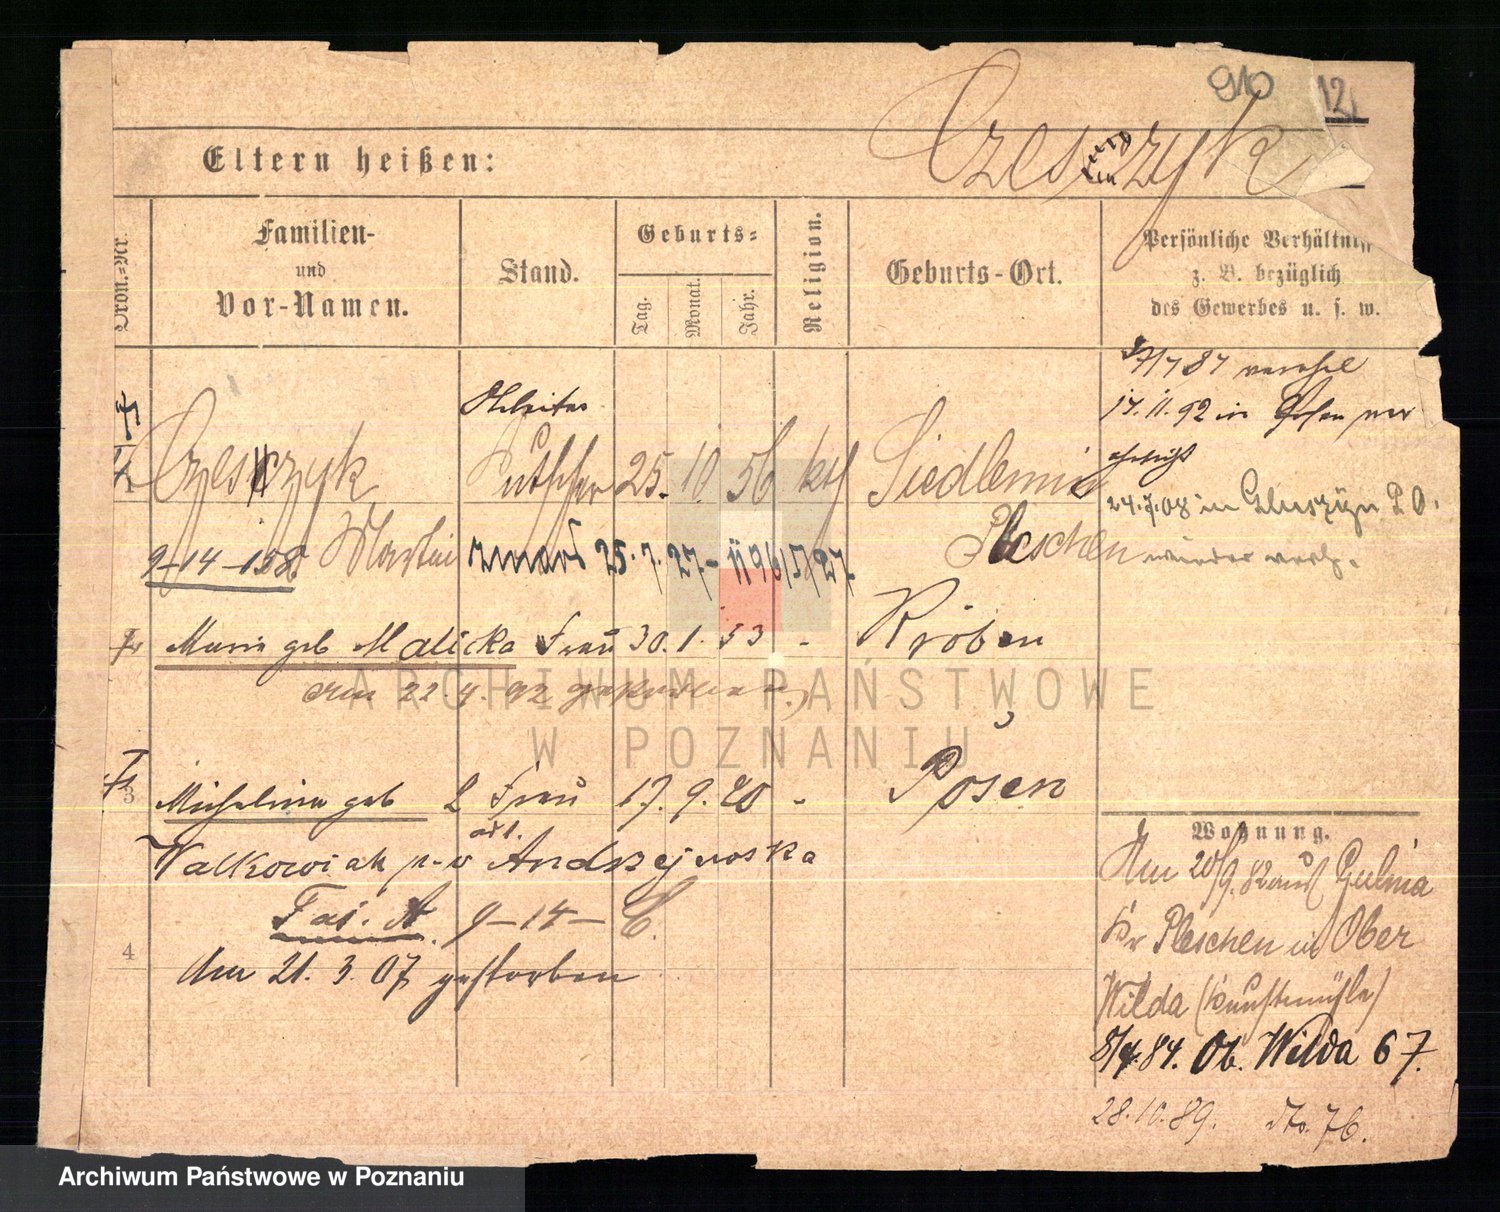 910
121
Czeszyk
Eltern heißen:
Ordn.-Nr.
Familien-
und
Vor-Namen.
Stand.
Geburts-
Tag.
Monat.
Jahr.
Religion.
Geburts-Ort.
Persönliche Verhältniss
z. B. bezüglich
des Gewerbes u. s. w.
27/7 87 verehel
17. 11. 92 in Posen ver
ehelicht
24.7.08 in Gluszyn P. O.
wieder verh.
Arbeiter
Czesczyk 25. 10 56 kth Siedlemin
Pleschen
9-14-158 Martin
zmarł 25. 7. 27
Fr Marie geb Malicka Frau 30. 1. 53 - Kröben
am 22. 4. 92 gestorben
3 Michalina geb 2 Frau 17. 9. 20 - Posen
Walkowiak Andrzejewska
9-14-C.
4
Am 21. 3. 07 gestorben
Wohnung.
Am 20/9. 82 aus
Kr Pleschen in Ober
Wilda (Kunstmühle)
8/4. 84. Ob. Wilda 67.
28. 10. 89. dto. 76.
ARCHIWUM PAŃSTWOWE
W POZNANIU
Archiwum Państwowe w Poznaniu